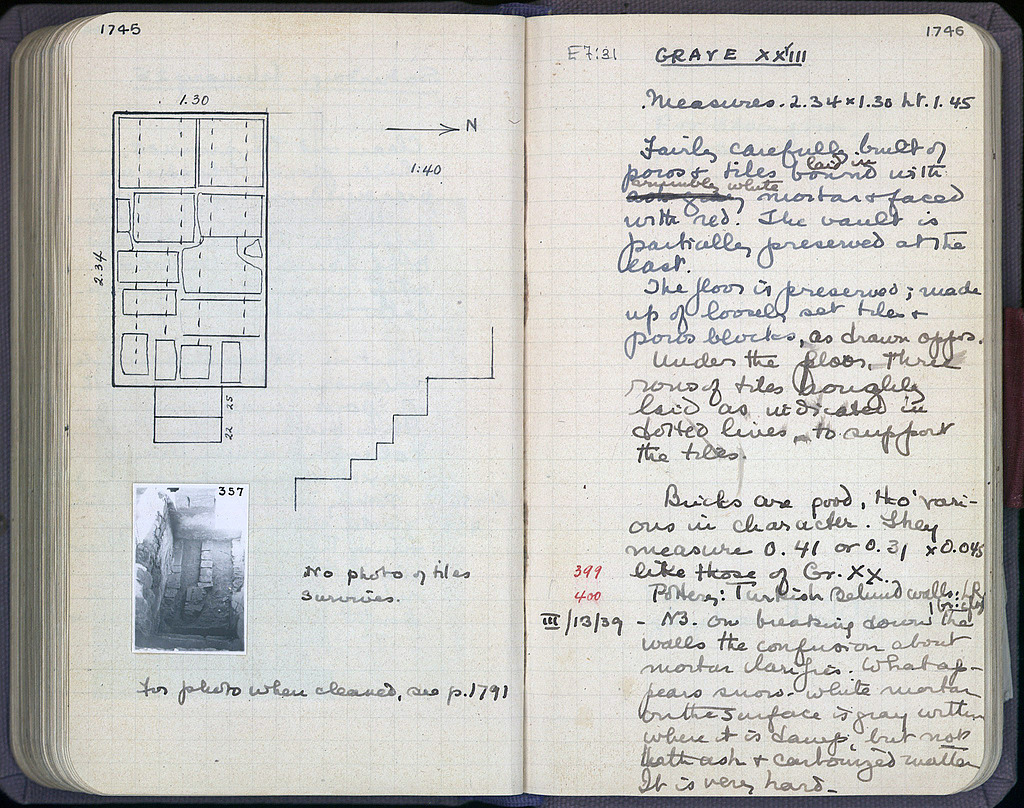 1745
1.30
N
1:40
2.34
25
22
357
No photo of tiles
survives.
For photo when cleaned, see p.1791
1746
E7:31
GRAVE XXVIII
Measures. 2.34 x 1.30 ht. 1.45
Fairly carefully built of
poros & tiles bound with
laid in
white
mortar & faced
with red. The vault is
partially preserved at the
east.
The floor is preserved; made
up of loosely set tiles &
poros blocks, as drawn oppos.
Under the floor, three
rows of tiles roughly
laid as indicated in
dotted lines, to support
the tiles.
Bricks are good, tho' vari-
ous in character. They
measure 0.41 or 0.31 x 0.045
399 like those of Gr. XX.
400 Pottery: Turkish Behind walls:
III/13/39 - NB. On breaking down the
walls the confusion about
mortar clarifies. What ap-
pears snow-white mortar
on the surface is gray within
where it is damp, but not
with ash & carbonized matter
It is very hard.